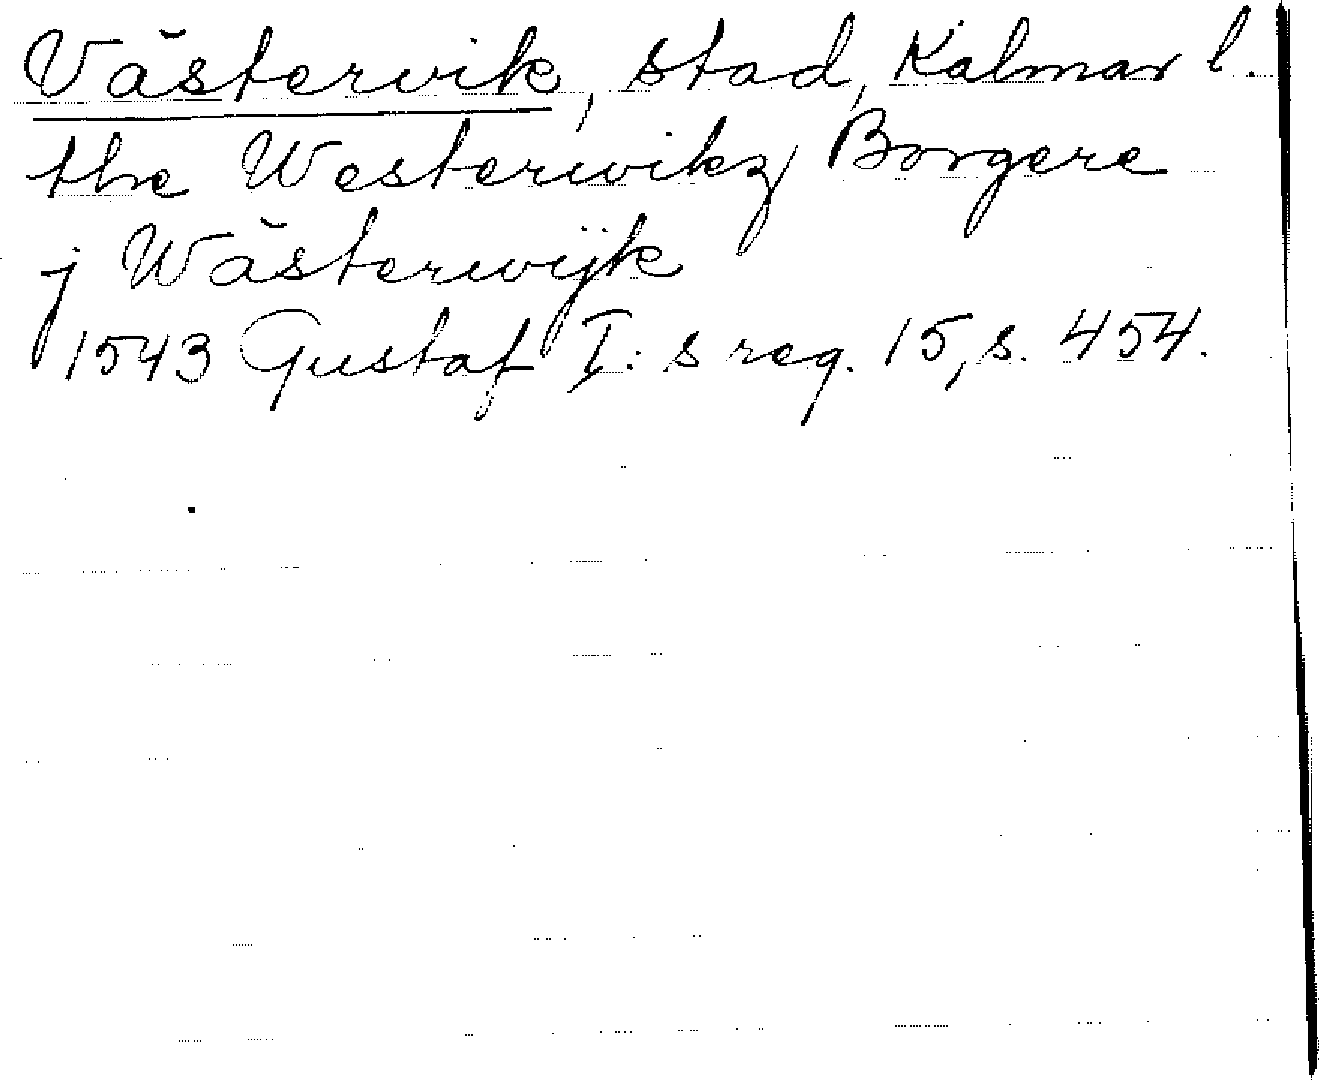 Västervik, stad, Kalmar l.
the Westerwikz Borgere
j Wästerwijk
1543 Gustaf I:s reg. 15, s. 454.